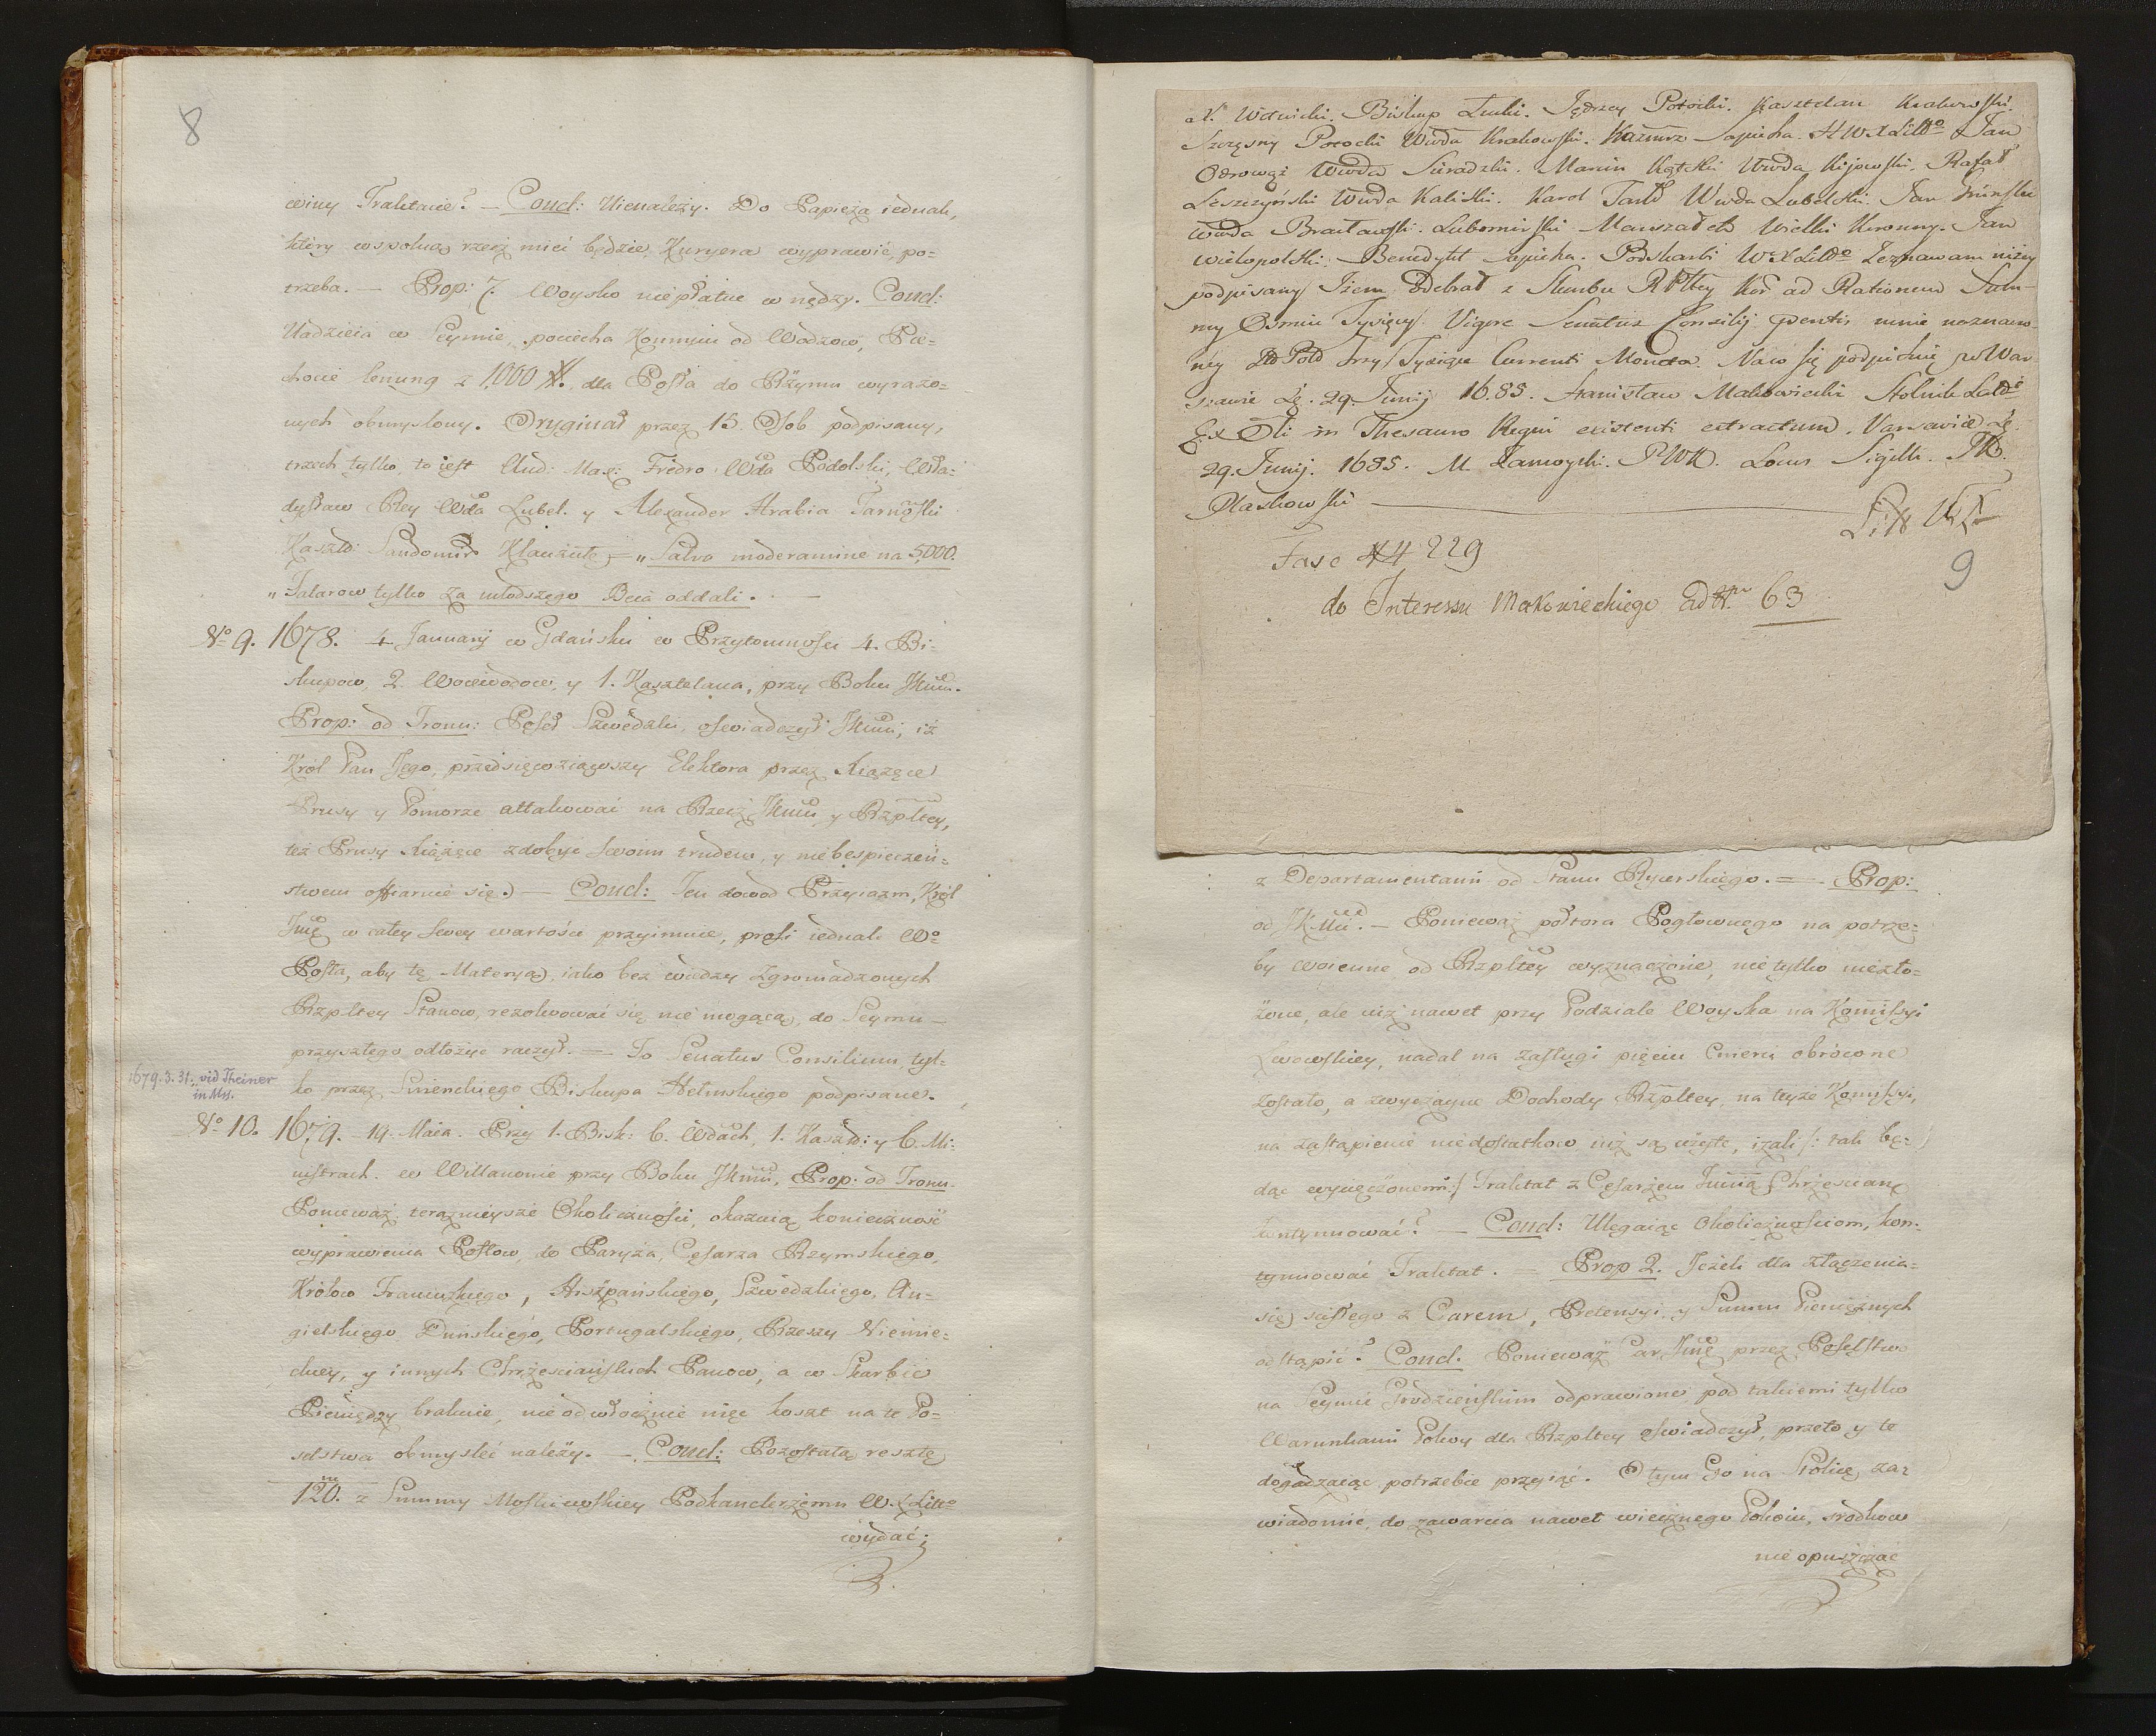 8
winy Traktacie? — Concl: Nienależy. Do Papieża iednak,
który wspolną rzecz mieć będzie, Kuryera wyprawić, po=
trzeba. — Prop: 7. Woysko niepłatne w nędzy. Concl:
Nadzieia w Seymie, pociecha
chocie lenung z 1,000 dla Posła do Rzymu wyrazo=
nych obmyslony. Oryginał przez 15. Osob podpisany,
trzech tylko, to iest And: Max: Fredro Wda Podolski, Wła=
dysław Rey Wda Lubel. y Alexander Hrabia Tarnowski
Kasztel: Sandomir Klauzulę = „Salvo moderamine na 5,000.
„Talarow tylko za młodszego Bcia oddali. —
No 9. 1678. 4. Januarij w Gdańsku w Przytomności 4. Bi=
skupow, 2. Woiewodow, y 1. Kasztelana, przy Boku JKMci.
Prop: od Tronu: Poseł Szwedzki, oswiadczył JKMci, iż
Król Pan Jego, przedsięwziąwszy Elektora przez Xiążęce
Prusy y Pomorze attakować na Rzecz JKMci y Rzpltey,
też Prusy Xiążęce zdobyć swoim trudem, y niebespieczeń=
stwem offiaruie się. — Concl: Ten dowod Przyiazni, Król
Jmć w całey swey wartości przyimuie, prosi iednak Wo
Posła, aby tę Materyą, iako bez wiedzy zgromadzonych
Rzpltey Stanow, rezolwować się nie mogącą, do Seymu
przyszłego odłożyć raczył. — To Senatus Consilium, tyl=
ko przez Biskupa Hełmskiego podpisane.
1679.3.31. vid Theiner
in Mss.
No 10. 1679. 14. Maia. Przy 1. Bisk: 6. Wdach, 1. Kasztel: y 6. Mi=
nistrach. w Willanowie przy Boku JKMci, Prop: od Tronu.
Ponieważ teraznieysze Okoliczności, okazuią konieczność
wyprawienia Posłow, do Paryża, Cesarza Rzymskiego,
Królow Francuzkiego, Hiszpańskiego, Szwedzkiego, An=
gielskiego Duńskiego, Portugalskiego, Rzeszy Niemie=
ckiey, y innych Chrześciańskich Panow, a w Skarbie
Pieniędzy brakuie, nieodwłocznie więc koszt na te Po=
selstwa obmysleć należy. — Concl: Pozostałą resztę
120. z Summy Moskiewskiey Podkanclerzemu W. X Litto
wydać;
Biskup Łucki. Jędrzey Potocki. Kasztelan Krakowski.
Szczęsny Potocki Wwda Krakowski. Kazimrz Sapieha. H W X Litto Jan
Odrowąż Wwda Siradzki. Marcin Kątski Wwda Kijowski. Rafał
Leszczyński Wwda Kaliski. Karol Tarło Wwda Lubelski. Jan
Wwda Bracławski. Lubomirski Marszałek Wielki Koronny. Jan
Wielopolski. Benedykt Sapieha. Podskarbi W X Litto Zeznawam niżey
podpisany Iżem Odebrał z Skarbu RPltey Kor ad Rationem Sum=
my Osmiu Tysięcy Vigore Senatus Consilij mnie naznaczo=
ney Zło Pold Trzy Tysiące Currenti Moneta. Naco się podpisuię w War
szawie de. 29. Junij 1685. Stanisław Makowiecki Stolnik Latti
Ex Oli in Thesauro Regni existenti extractum. Varsaviæ de
29. Junij. 1685. M Zamoyski. PWK. Locus Sigilli.
Maskowski
9
Fasc 229
do Interessu Makowieckiego ad Nrm 63
z Departamentami od Stanu Rycerskiego. = Prop:
od JKMci. — Ponieważ połtora Pogłownego na potrze=
by woienne od Rzpltey wyznaczone, nie tylko niezło=
żone, ale iuż nawet przy Podziale Woyska na Kommissyi
Lwowskiey, nadal na zasługi pięciu Cwierci obrócone
zostało, a zwyczayne Dochody Rzpltey, na teyże Kommissyi,
na zastąpienie niedostatkow iuż są użyte, iżali /: tak bę=
dąc wycieńczonemi :/ Traktat z Cesarzem Jmcią Chrześcian
kontynuować? — Concl: Ulegaiąc Okolicznościom, kon=
tynuować Traktat. — Prop 2. Jeżeli dla złączenia=
się scisłego z Carem, Pretensyi y Summ Pieniężnych
odstąpić? Concl. Ponieważ Car Jmć przez Poselstwo
na Seymie Grodzieńskim odprawione, pod takiemi tylko
Warunkami Pokoy dla Rzpltey oswiadczył, przeto y te
dogadzaiąc potrzebie przyiąć. O tym Go na Stolicę za=
wiadomić, do zawarcia nawet wiecznego Pokoiu, srodkow
nie opuszczać